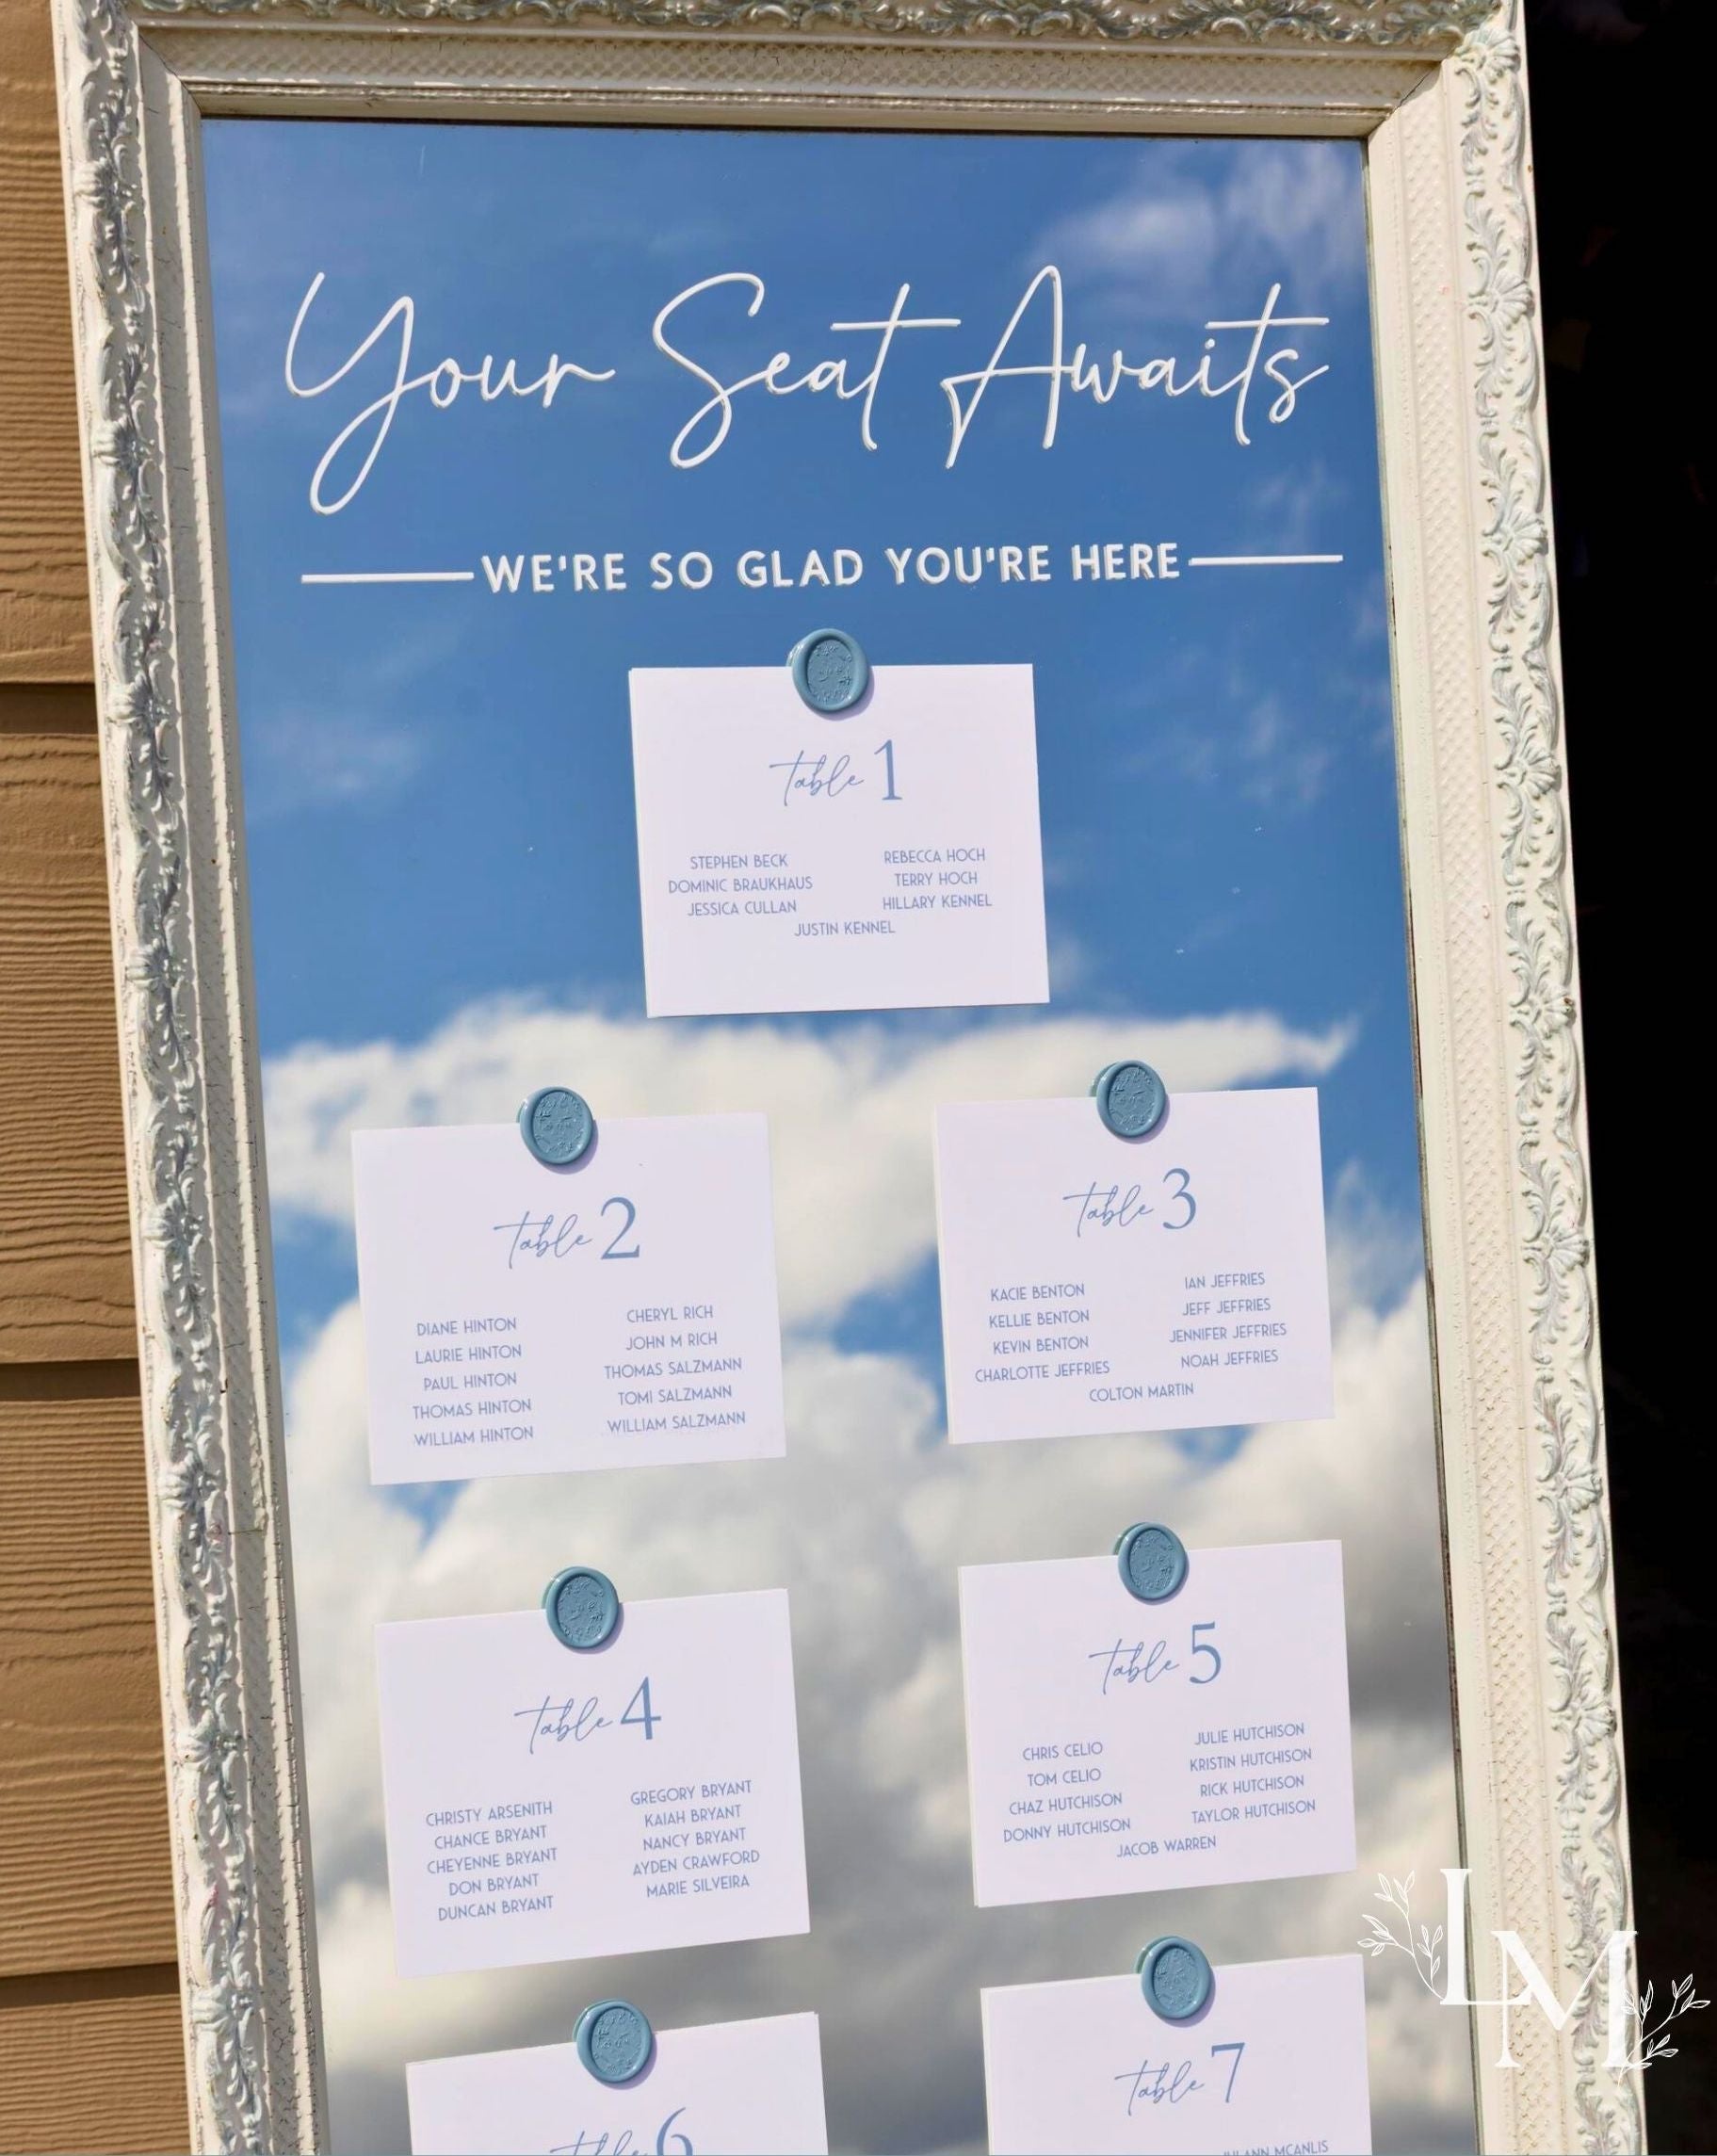 Your Seat Awaits
WE'RE SO GLAD YOU'RE HERE
Table 1
STEPHEN BECK
DOMINIC BRAUKHAUS
JESSICA CULLAN
REBECCA HOCH
TERRY HOCH
HILLARY KENNEL
JUSTIN KENNEL
Table 2
DIANE HINTON
LAURIE HINTON
PAUL HINTON
THOMAS HINTON
WILLIAM HINTON
CHERYL RICH
JOHN M RICH
THOMAS SALZMANN
TOMI SALZMANN
WILLIAM SALZMANN
Table 3
KACIE BENTON
KELLIE BENTON
KEVIN BENTON
CHARLOTTE JEFFRIES
IAN JEFFRIES
JEFF JEFFRIES
JENNIFER JEFFRIES
NOAH JEFFRIES
COLTON MARTIN
Table 4
CHRISTY ARSENITH
CHANCE BRYANT
CHEYENNE BRYANT
DON BRYANT
DUNCAN BRYANT
GREGORY BRYANT
KAIAH BRYANT
NANCY BRYANT
AYDEN CRAWFORD
MARIE SILVEIRA
Table 5
CHRIS CELIO
TOM CELIO
CHAZ HUTCHISON
DONNY HUTCHISON
JULIE HUTCHISON
KRISTIN HUTCHISON
RICK HUTCHISON
TAYLOR HUTCHISON
JACOB WARREN
Table 6
Table 7
MCANLIS
LM